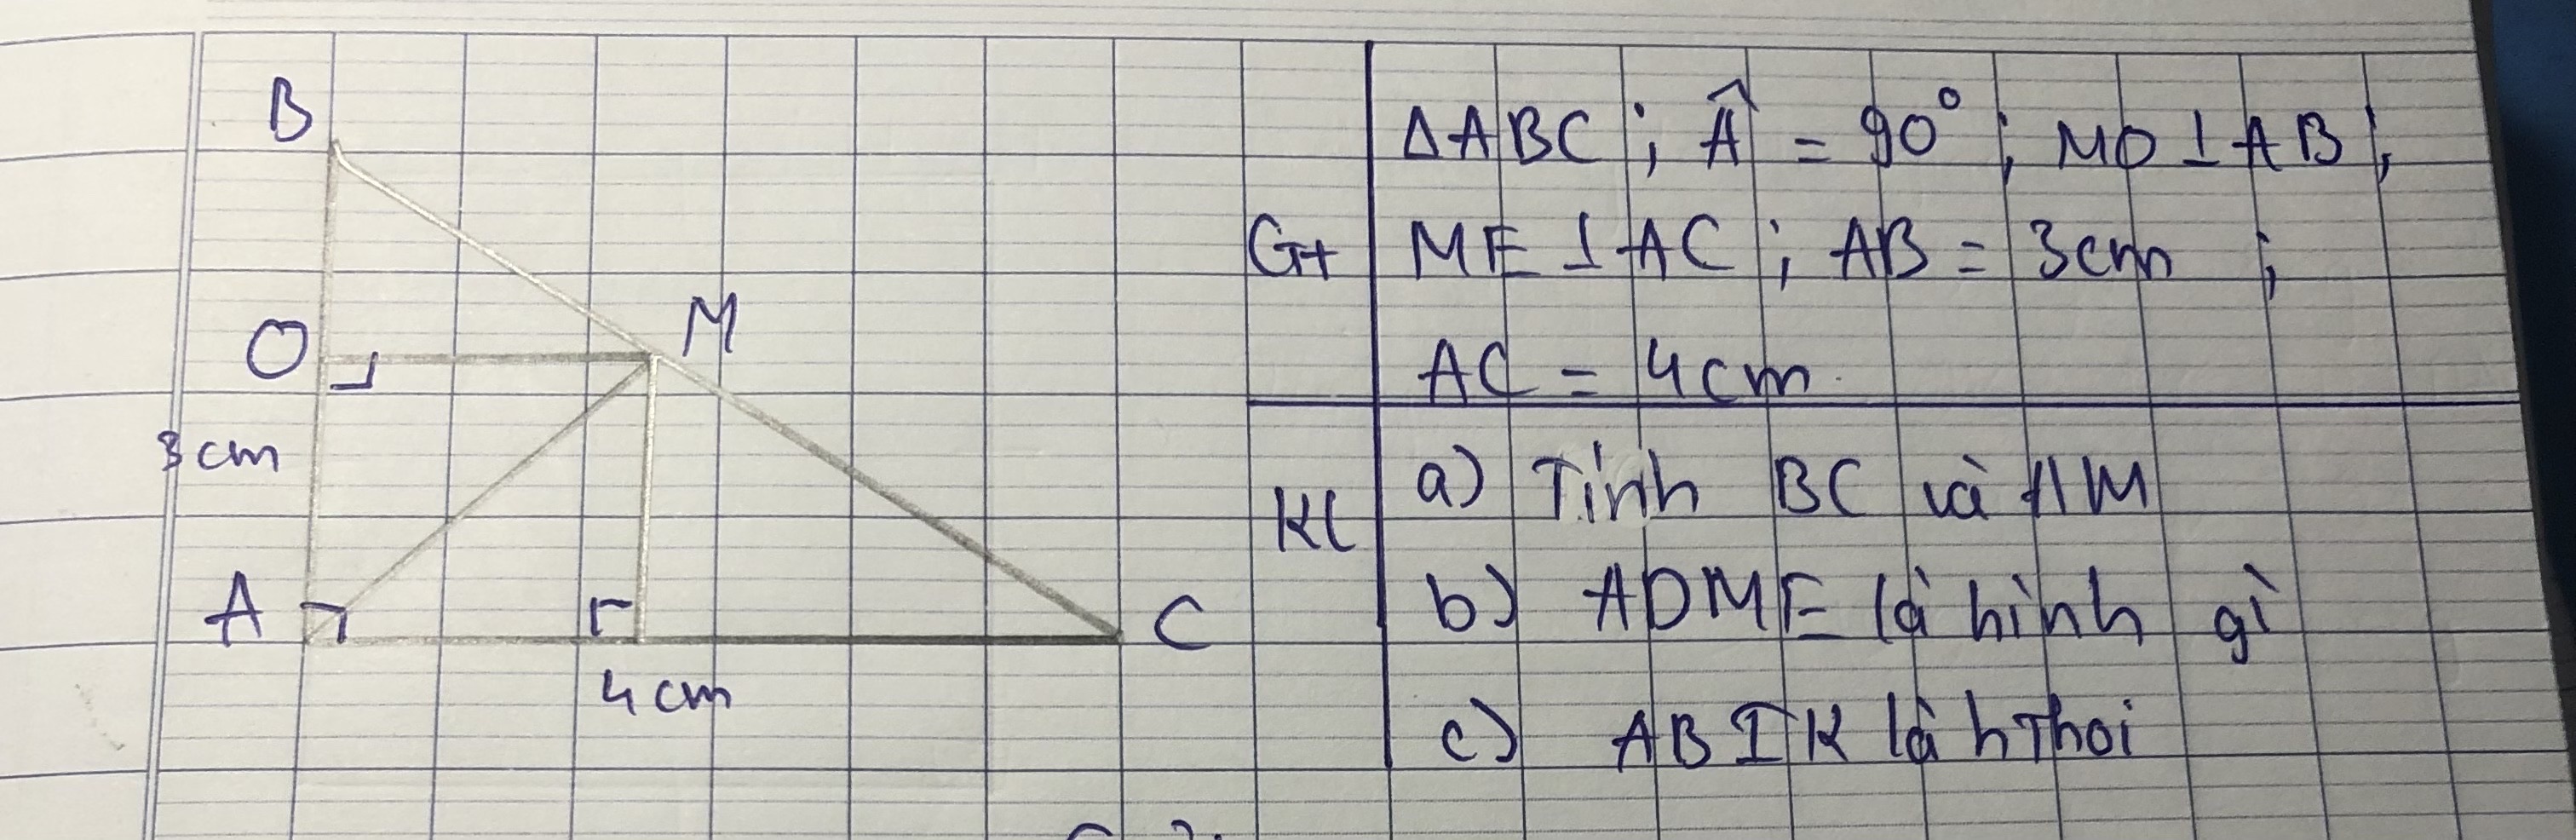 B
M
O
3cm
A
C
4cm
ΔABC ; Â = 90° ; MD ⊥ AB ;
Gt ME ⊥ AC ; AB = 3cm ;
AC = 4cm
a) Tính BC và AM
Kl
b) ADME là hình gì
c) ABIK là hThoi